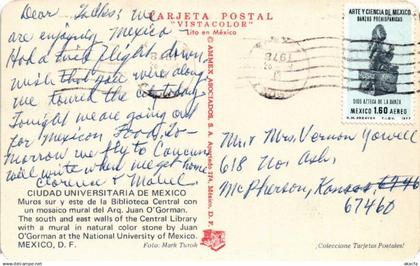 TARJETA POSTAL
"VISTACOLOR"
Lito en México
Dear Folks; We
are enjoying Mexico
Had a fine flight down
wish you were along
we toured the city today
Tonight we are going out
for Mexican Food. To-
morrow we fly to Cancun
will write when we get home
Clarence & Mabel
CIUDAD UNIVERSITARIA DE MEXICO
Muros sur y este de la Biblioteca Central con
un mosaico mural del Arq. Juan O'Gorman.
The south and east walls of the Central Library
with a mural in natural color stone by Juan
O'Gorman at the National University of Mexico.
MEXICO, D. F.
Foto: Mark Turok
AMMEX ASOCIADOS, S. A.
MEXICO, D. F.
1978
ARTE Y CIENCIA DE MEXICO
DANZAS PREHISPANICAS
DIOS AZTECA DE LA DANZA
MEXICO 1.60 AEREO
Mr & Mrs Vernon Yowell
618 No Ash
McPherson, Kansas
67460
¡Coleccione Tarjetas Postales!